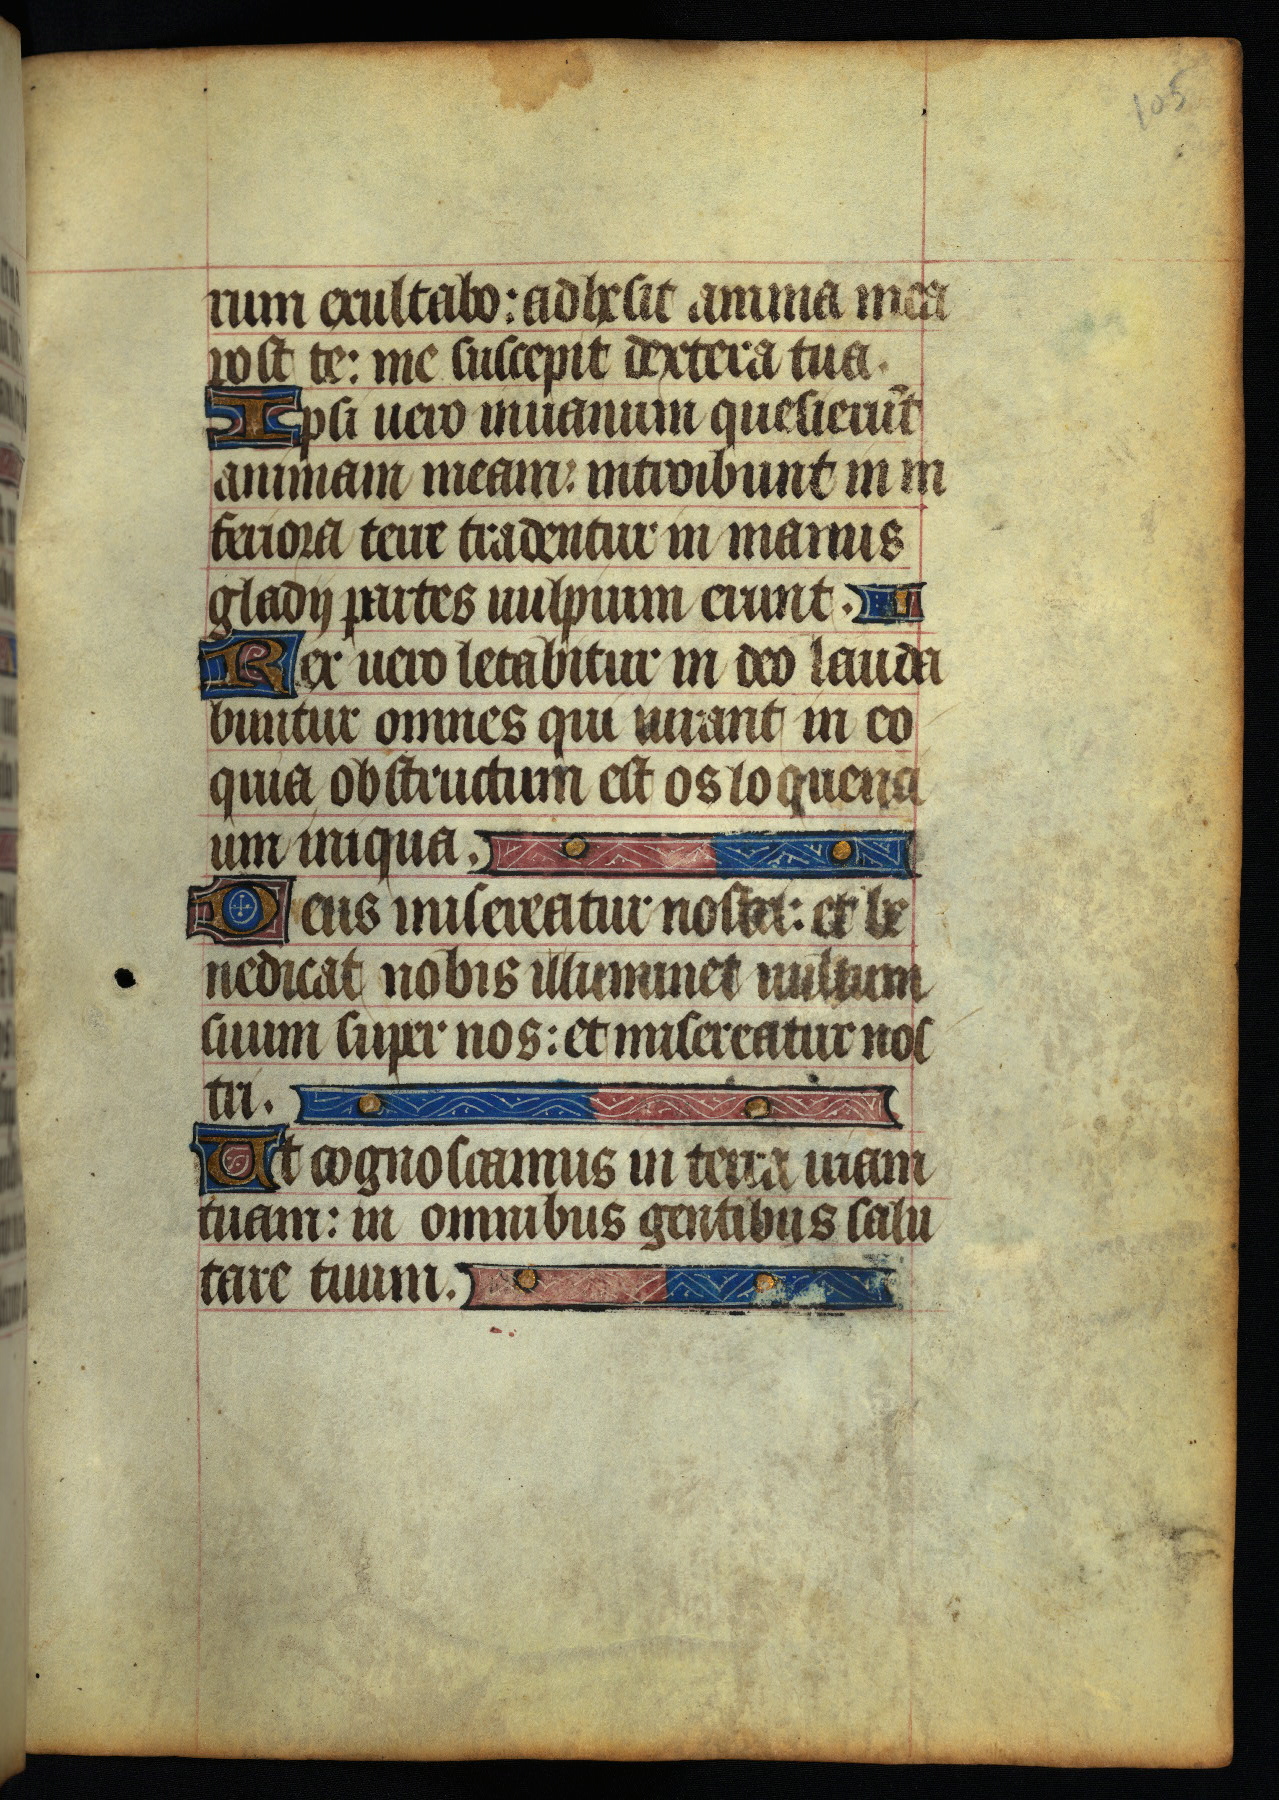 105
rum exultabo: adhesit anima mea
post te: me suscepit dextera tua.
Ipsi uero inuanum quesierūt
animam meam: introibunt in in
feriora terre tradentur in manus
gladij partes uulpium erunt.
Rex uero letabitur in deo lauda
buntur omnes qui iurant in eo
quia obstructum est os loquenci
um iniqua.
Deus misereatur nostri: et be
nedicat nobis illuminet uultum
suum super nos: et misereatur nos
tri.
Ut cognoscamus in terra uiam
tuam: in omnibus gentibus salu
tare tuum.